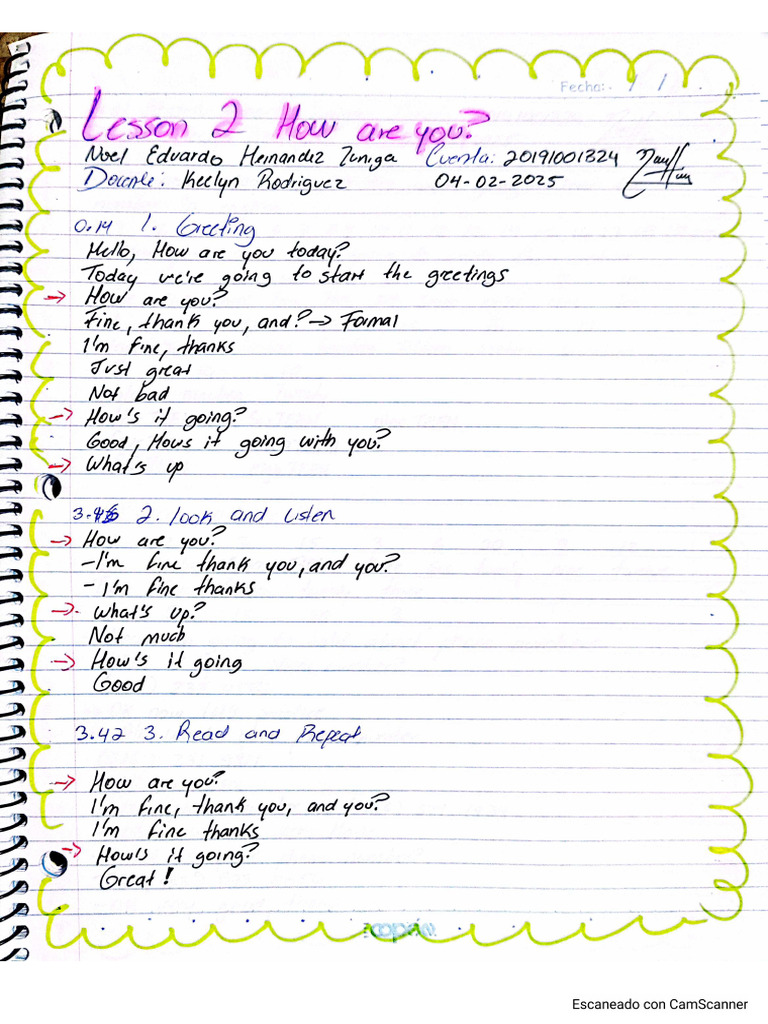 Fecha: / /
Lesson 2 How are you?
Noel Eduardo Hernandez Zuniga Cuenta: 20191001324
Docente: Keelyn Rodriguez 04-02-2025
0.14 1. Greeting
Hello, How are you today?
Today we're going to start the greetings
→ How are you?
Fine, thank you, and? → Formal
I'm fine, thanks
Just great
Not bad
→ How's it going?
Good, Hows it going with you?
→ What's up
2. look and Listen
→ How are you?
- I'm fine thank you, and you?
- I'm fine thanks
→ What's up?
Not much
→ How's it going
Good
3.42 3. Read and Repeat
→ How are you?
I'm fine, thank you, and you?
I'm fine thanks
→ How's it going?
Great!
Escaneado con CamScanner